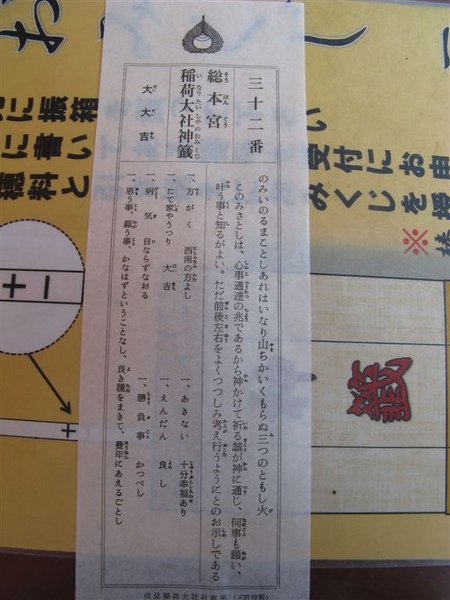 三十二番
総本宮
稲荷大社神籤
大大吉
のみいのるまことしあれはいなり山ちかいくもらぬ三つのともし火
このみさとしは、心事通達の兆であるから神かけて祈る誠が神に通じ、何事も願い、
叶う事と知るがよい。ただ前後左右をよくつつしみ考え行うようにとのお示しである
一、方がく 西南の方よし
一、たて家やうつり 大吉
一、病気 日ならずなおる
一、あきない 十分幸福あり
一、えんだん 良し
一、勝負事 かつべし
一、思う事、願う事、かなはずということなし、良き種をまきて、豊年にあえるごとし
伏見稲荷大社社務所 (不許複製)
に振箱
に書い
穂料と
い
受付にお申
みくじを
※
籤